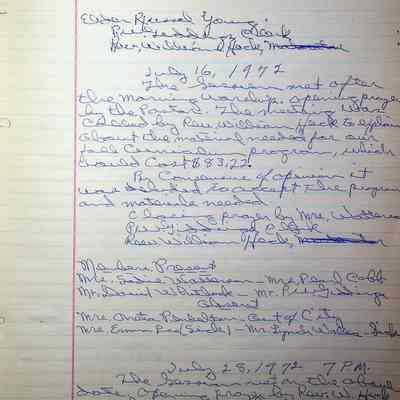 Elder Russel Young
Clerk
Rev. William Hack,
July 16, 1972
The Session met after
the Morning Worship, opening prayer
by the Pastor. The meeting was
called by Rev. William Hack to explain
about the material needed for our
fall Curriculum program, which
would cost $83.22.
By Consensus of opinion it
was decided to accept the program
and materials needed.
Closing prayer by Mrs. Watterson
Clerk
Rev. William Hack,
Members Present
Mrs. Sadie Watterson - Mrs. Pearl Cobb
Mr. David Whitlock - Mr.
Absent
Mrs. Anita - Out of City
Mrs. Emma (Sick) - Mr. Lynch - Sick
July 28, 1972 7 P.M.
The Session met on the above
date, opening prayer by Rev. W. Hack